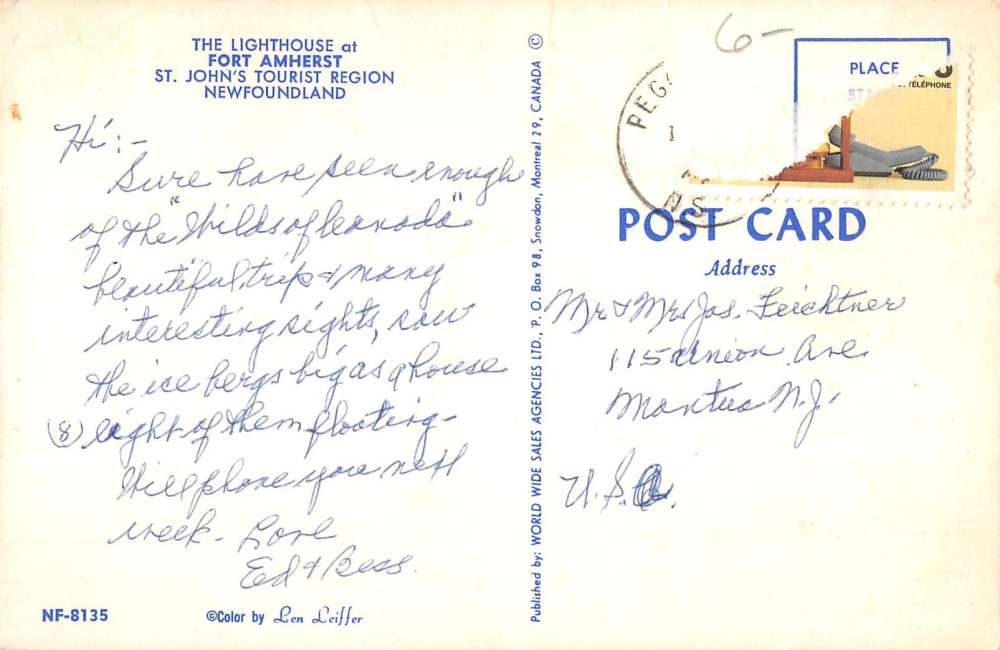 THE LIGHTHOUSE at
FORT AMHERST
ST. JOHN'S TOURIST REGION
NEWFOUNDLAND
Hi:-
Sure have seen enough
of the "Wilds of Canada"
beautiful trip & many
interesting sights, saw
the ice bergs big as a house
(8) eight of them floating-
Will phone you next
week. Love
Ed & Bess.
NF-8135
©Color by Len Leiffer
Published by: WORLD WIDE SALES AGENCIES LTD., P. O. Box 98, Snowdon, Montreal 29, CANADA ©
6-
PEG
N S
PLACE
TÉLÉPHONE
POST CARD
Address
Mr & Mrs Jos. Feichtner
115 Union Ave
Mantua N.J.
U.S.A.